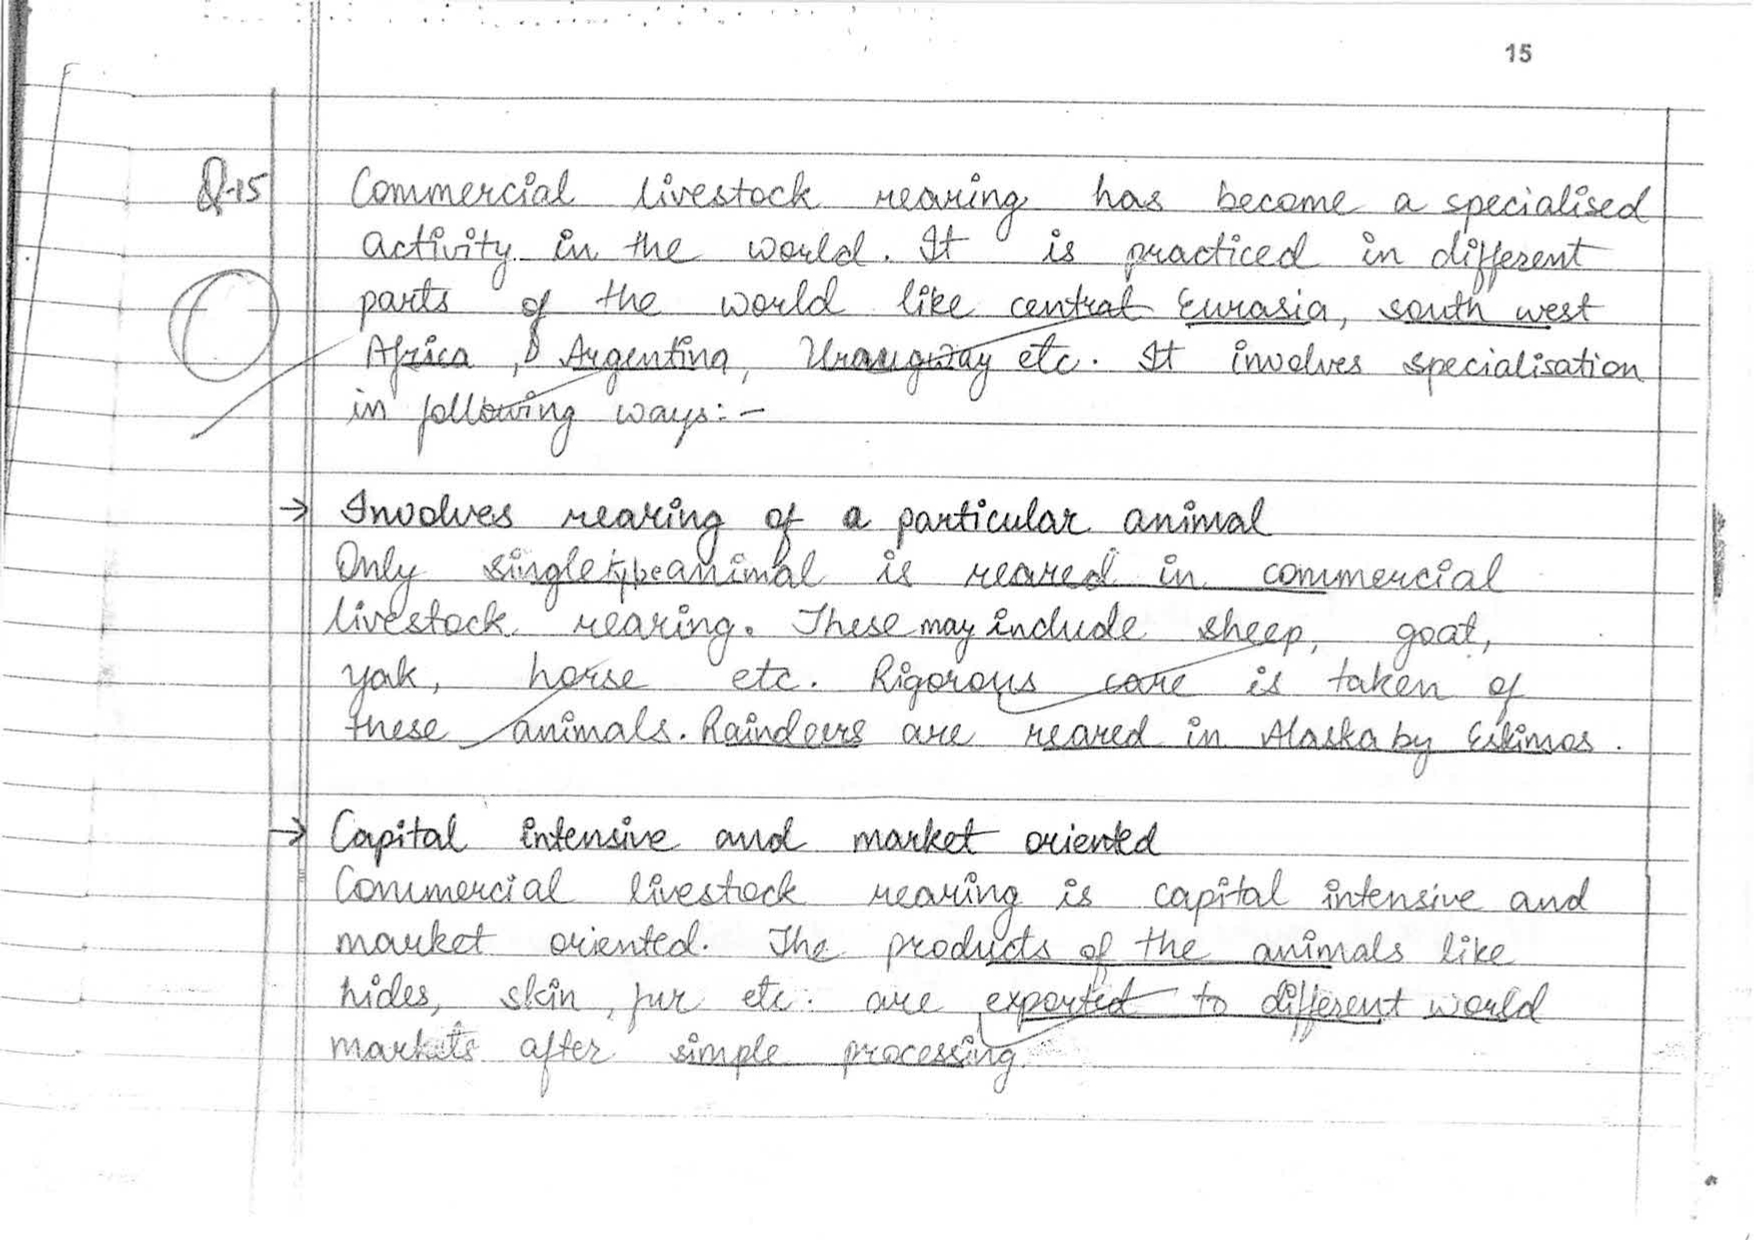 15
Q-15 Commercial livestock rearing has become a specialised
activity in the world. It is practiced in different
parts of the world like central Eurasia, south west
Africa, Argentina, Uraugway etc. It involves specialisation
in following ways:-
→ Involves rearing of a particular animal
Only single type animal is reared in commercial
livestock rearing. These may include sheep, goat,
yak, horse etc. Rigorous care is taken of
these animals. Raindeers are reared in Alaska by Eskimos.
→ Capital intensive and market oriented
Commercial livestock rearing is capital intensive and
market oriented. The products of the animals like
hides, skin, fur etc. are exported to different world
markets after simple processing.